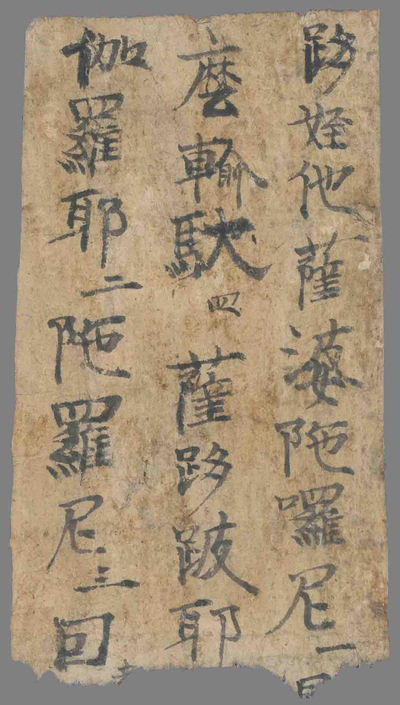 跢姪他薩婆陁囉尼一
麼輸馱四薩跢跛耶
伽羅耶二陁羅尼三回